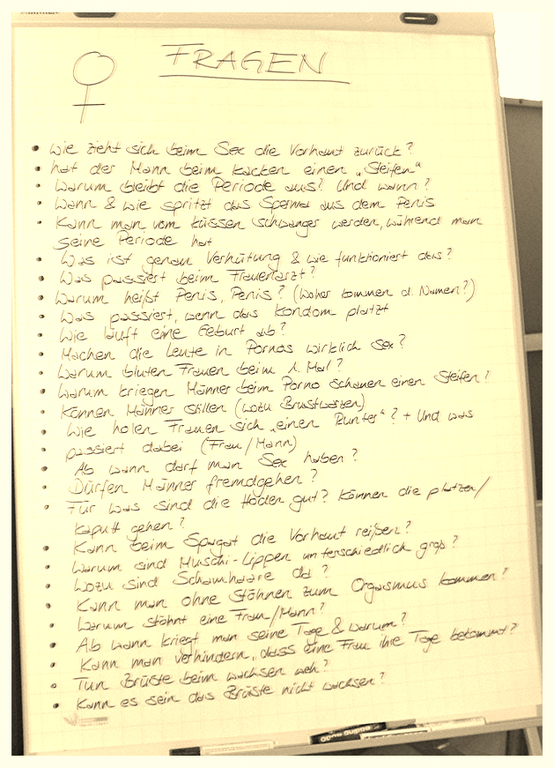 FRAGEN
• Wie zieht sich beim Sex die Vorhaut zurück?
• hat der Mann beim kacken einen „Steifen"
• Warum bleibt die Periode aus? Und wann?
• Wann & wie spritzt das Sperma aus dem Penis
• Kann man vom küssen schwanger werden, während man
seine Periode hat
• Was ist genau Verhütung & wie funktioniert das?
• Was passiert beim Frauenarzt?
• Warum heißt Penis, Penis? (Woher kommen d. Namen?)
• Was passiert, wenn das Kondom platzt
• Wie läuft eine Geburt ab?
• Machen die Leute in Pornos wirklich Sex?
• Warum bluten Frauen beim 1. Mal?
• Warum kriegen Männer beim Porno schauen einen Steifen?
• Können Männer stillen (wozu Brustwarzen)
• Wie holen Frauen sich „einen Runter"? + Und was
passiert dabei (Frau/Mann)
• Ab wann darf man Sex haben?
• Dürfen Männer fremdgehen?
• Für was sind die Hoden gut? Können die platzen/
kaputt gehen?
• Kann beim Spagat die Vorhaut reißen?
• Warum sind Muschi-Lippen unterschiedlich groß?
• Wozu sind Schamhaare da?
• Kann man ohne Stöhnen zum Orgasmus kommen?
• Warum stöhnt eine Frau/Mann?
• Ab wann kriegt man seine Tage & warum?
• Kann man verhindern, dass eine Frau ihre Tage bekommt?
• Tun Brüste beim wachsen weh?
• Kann es sein das Brüste nicht wachsen?